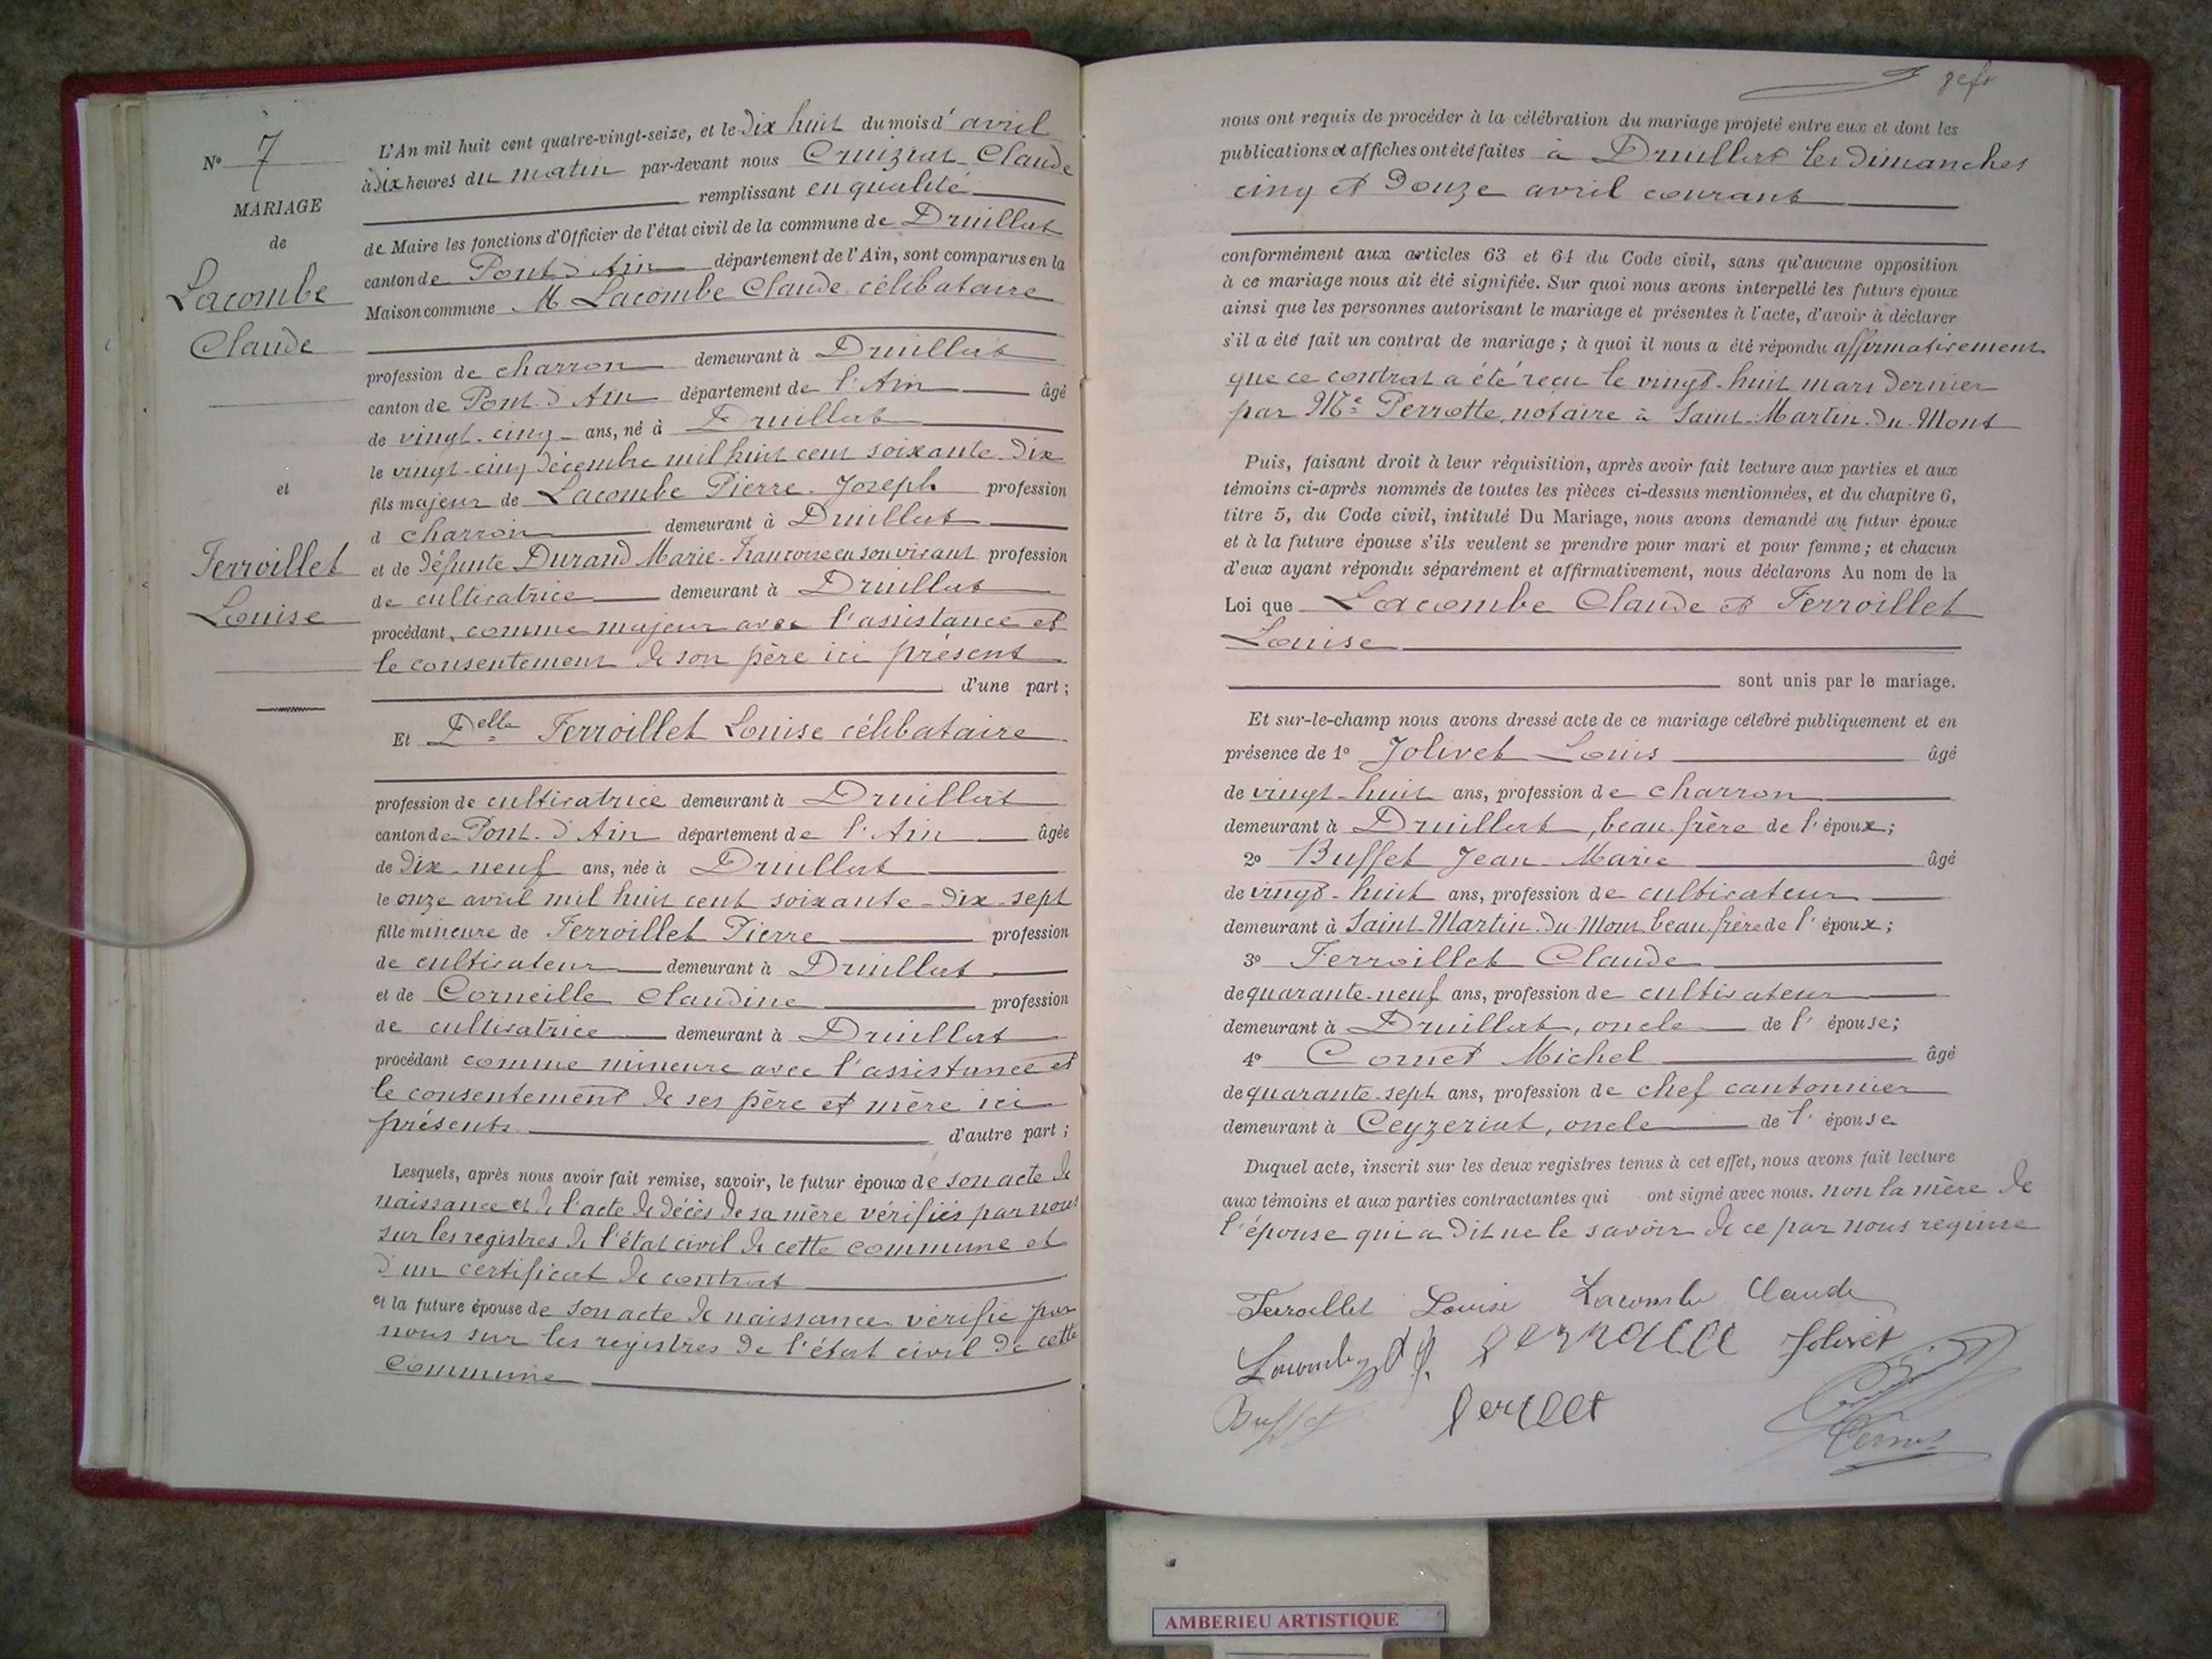 N° 7
MARIAGE
de
Lacombe
Claude
et
Ferroillet
Louise
L'An mil huit cent quatre-vingt-seize, et le dix huit du mois d'avril
à dix heures du matin par-devant nous Cruiziat Claude
remplissant en qualité
de Maire les fonctions d'Officier de l'état civil de la commune de Druillat
canton de Pont d'Ain département de l'Ain, sont comparus en la
Maison commune M. Lacombe Claude célibataire
profession de charron demeurant à Druillat
canton de Pont d'Ain département de l'Ain âgé
de vingt-cinq ans, né à Druillat
le vingt-cinq décembre mil huit cent soixante-dix
fils majeur de Lacombe Pierre-Joseph profession
d charron demeurant à Druillat
et de défunte Durand Marie-Françoise en son vivant profession
de cultivatrice demeurant à Druillat
procédant comme majeur avec l'assistance et
le consentement de son père ici présent
d'une part;
Et Delle Ferroillet Louise célibataire
profession de cultivatrice demeurant à Druillat
canton de Pont-d'Ain département de l'Ain âgée
de dix-neuf ans, née à Druillat
le onze avril mil huit cent soixante-dix-sept
fille mineure de Ferroillet Pierre profession
de cultivateur demeurant à Druillat
et de Corneille Claudine profession
de cultivatrice demeurant à Druillat
procédant comme mineure avec l'assistance et
le consentement de ses père et mère ici
présents d'autre part;
Lesquels, après nous avoir fait remise, savoir, le futur époux de son acte de
naissance et de l'acte de décès de sa mère vérifiés par nous
sur les registres de l'état civil de cette commune et
d'un certificat de contrat
et la future épouse de son acte de naissance vérifié par
nous sur les registres de l'état civil de cette
commune
nous ont requis de procéder à la célébration du mariage projeté entre eux et dont les
publications et affiches ont été faites à Druillat les dimanches
cinq et douze avril courant
conformément aux articles 63 et 64 du Code civil, sans qu'aucune opposition
à ce mariage nous ait été signifiée. Sur quoi nous avons interpellé les futurs époux
ainsi que les personnes autorisant le mariage et présentes à l'acte, d'avoir à déclarer
s'il a été fait un contrat de mariage; à quoi il nous a été répondu affirmativement
que ce contrat a été reçu le vingt-huit mars dernier
par Me Perrotte, notaire à Saint-Martin-du-Mont
Puis, faisant droit à leur réquisition, après avoir fait lecture aux parties et aux
témoins ci-après nommés de toutes les pièces ci-dessus mentionnées, et du chapitre 6,
titre 5, du Code civil, intitulé Du Mariage, nous avons demandé au futur époux
et à la future épouse s'ils veulent se prendre pour mari et pour femme; et chacun
d'eux ayant répondu séparément et affirmativement, nous déclarons Au nom de la
Loi que Lacombe Claude et Ferroillet
Louise
sont unis par le mariage.
Et sur-le-champ nous avons dressé acte de ce mariage célébré publiquement et en
présence de 1° Jolivet Louis âgé
de vingt-huit ans, profession de charron
demeurant à Druillat, beau-frère de l'époux;
2° Buffet Jean-Marie âgé
de vingt-huit ans, profession de cultivateur
demeurant à Saint-Martin-du-Mont beau frère de l'époux;
3° Ferroillet Claude
de quarante-neuf ans, profession de cultivateur
demeurant à Druillat, oncle de l'épouse;
4° Cornet Michel âgé
de quarante-sept ans, profession de chef cantonnier
demeurant à Ceyzeriat, oncle de l'épouse
Duquel acte, inscrit sur les deux registres tenus à cet effet, nous avons fait lecture
aux témoins et aux parties contractantes qui ont signé avec nous. non la mère de
l'épouse qui a dit ne le savoir de ce par nous requise
Ferroillet Louise Lacombe Claude
Lacombe Jolivet
Buffet
AMBERIEU ARTISTIQUE